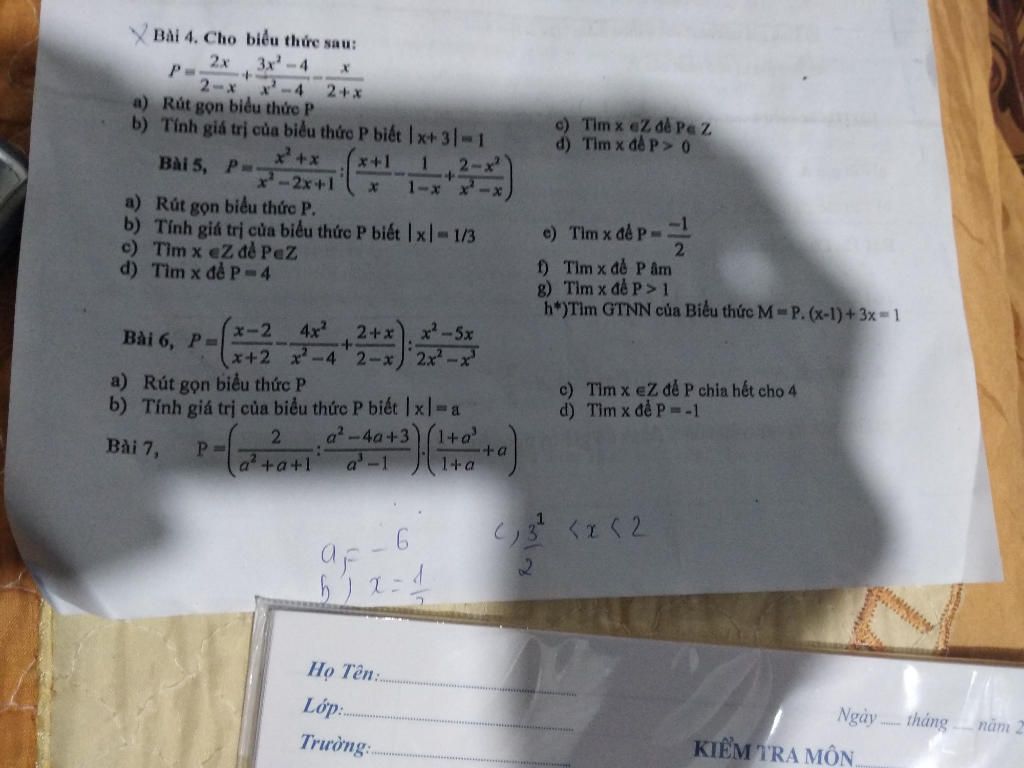 Bài 4. Cho biểu thức sau:
P = \frac{2x}{2-x} + \frac{3x^2-4}{x^2-4} - \frac{x}{2+x}
a) Rút gọn biểu thức P
b) Tính giá trị của biểu thức P biết |x+3| = 1
c) Tìm x ∈Z để P∈ Z
d) Tìm x để P > 0
Bài 5, P = \frac{x^2+x}{x^2-2x+1} : \left(\frac{x+1}{x} - \frac{1}{1-x} + \frac{2-x^2}{x^2-x}\right)
a) Rút gọn biểu thức P.
b) Tính giá trị của biểu thức P biết |x| = 1/3
c) Tìm x ∈Z để P∈Z
d) Tìm x để P = 4
e) Tìm x để P = \frac{-1}{2}
f) Tìm x để P âm
g) Tìm x để P > 1
h*)Tìm GTNN của Biểu thức M = P. (x-1) + 3x = 1
Bài 6, P = \left(\frac{x-2}{x+2} - \frac{4x^2}{x^2-4} + \frac{2+x}{2-x}\right) : \frac{x^2-5x}{2x^2-x^3}
a) Rút gọn biểu thức P
b) Tính giá trị của biểu thức P biết |x| = a
c) Tìm x ∈Z để P chia hết cho 4
d) Tìm x để P = -1
Bài 7, P = \left(\frac{2}{a^2+a+1} : \frac{a^2-4a+3}{a^3-1}\right).\left(\frac{1+a^3}{1+a} + a\right)
a, = - 6
b) x =
c, < x < 2
Họ Tên:
Lớp:
Trường:
Ngày tháng năm 2
KIỂM TRA MÔN